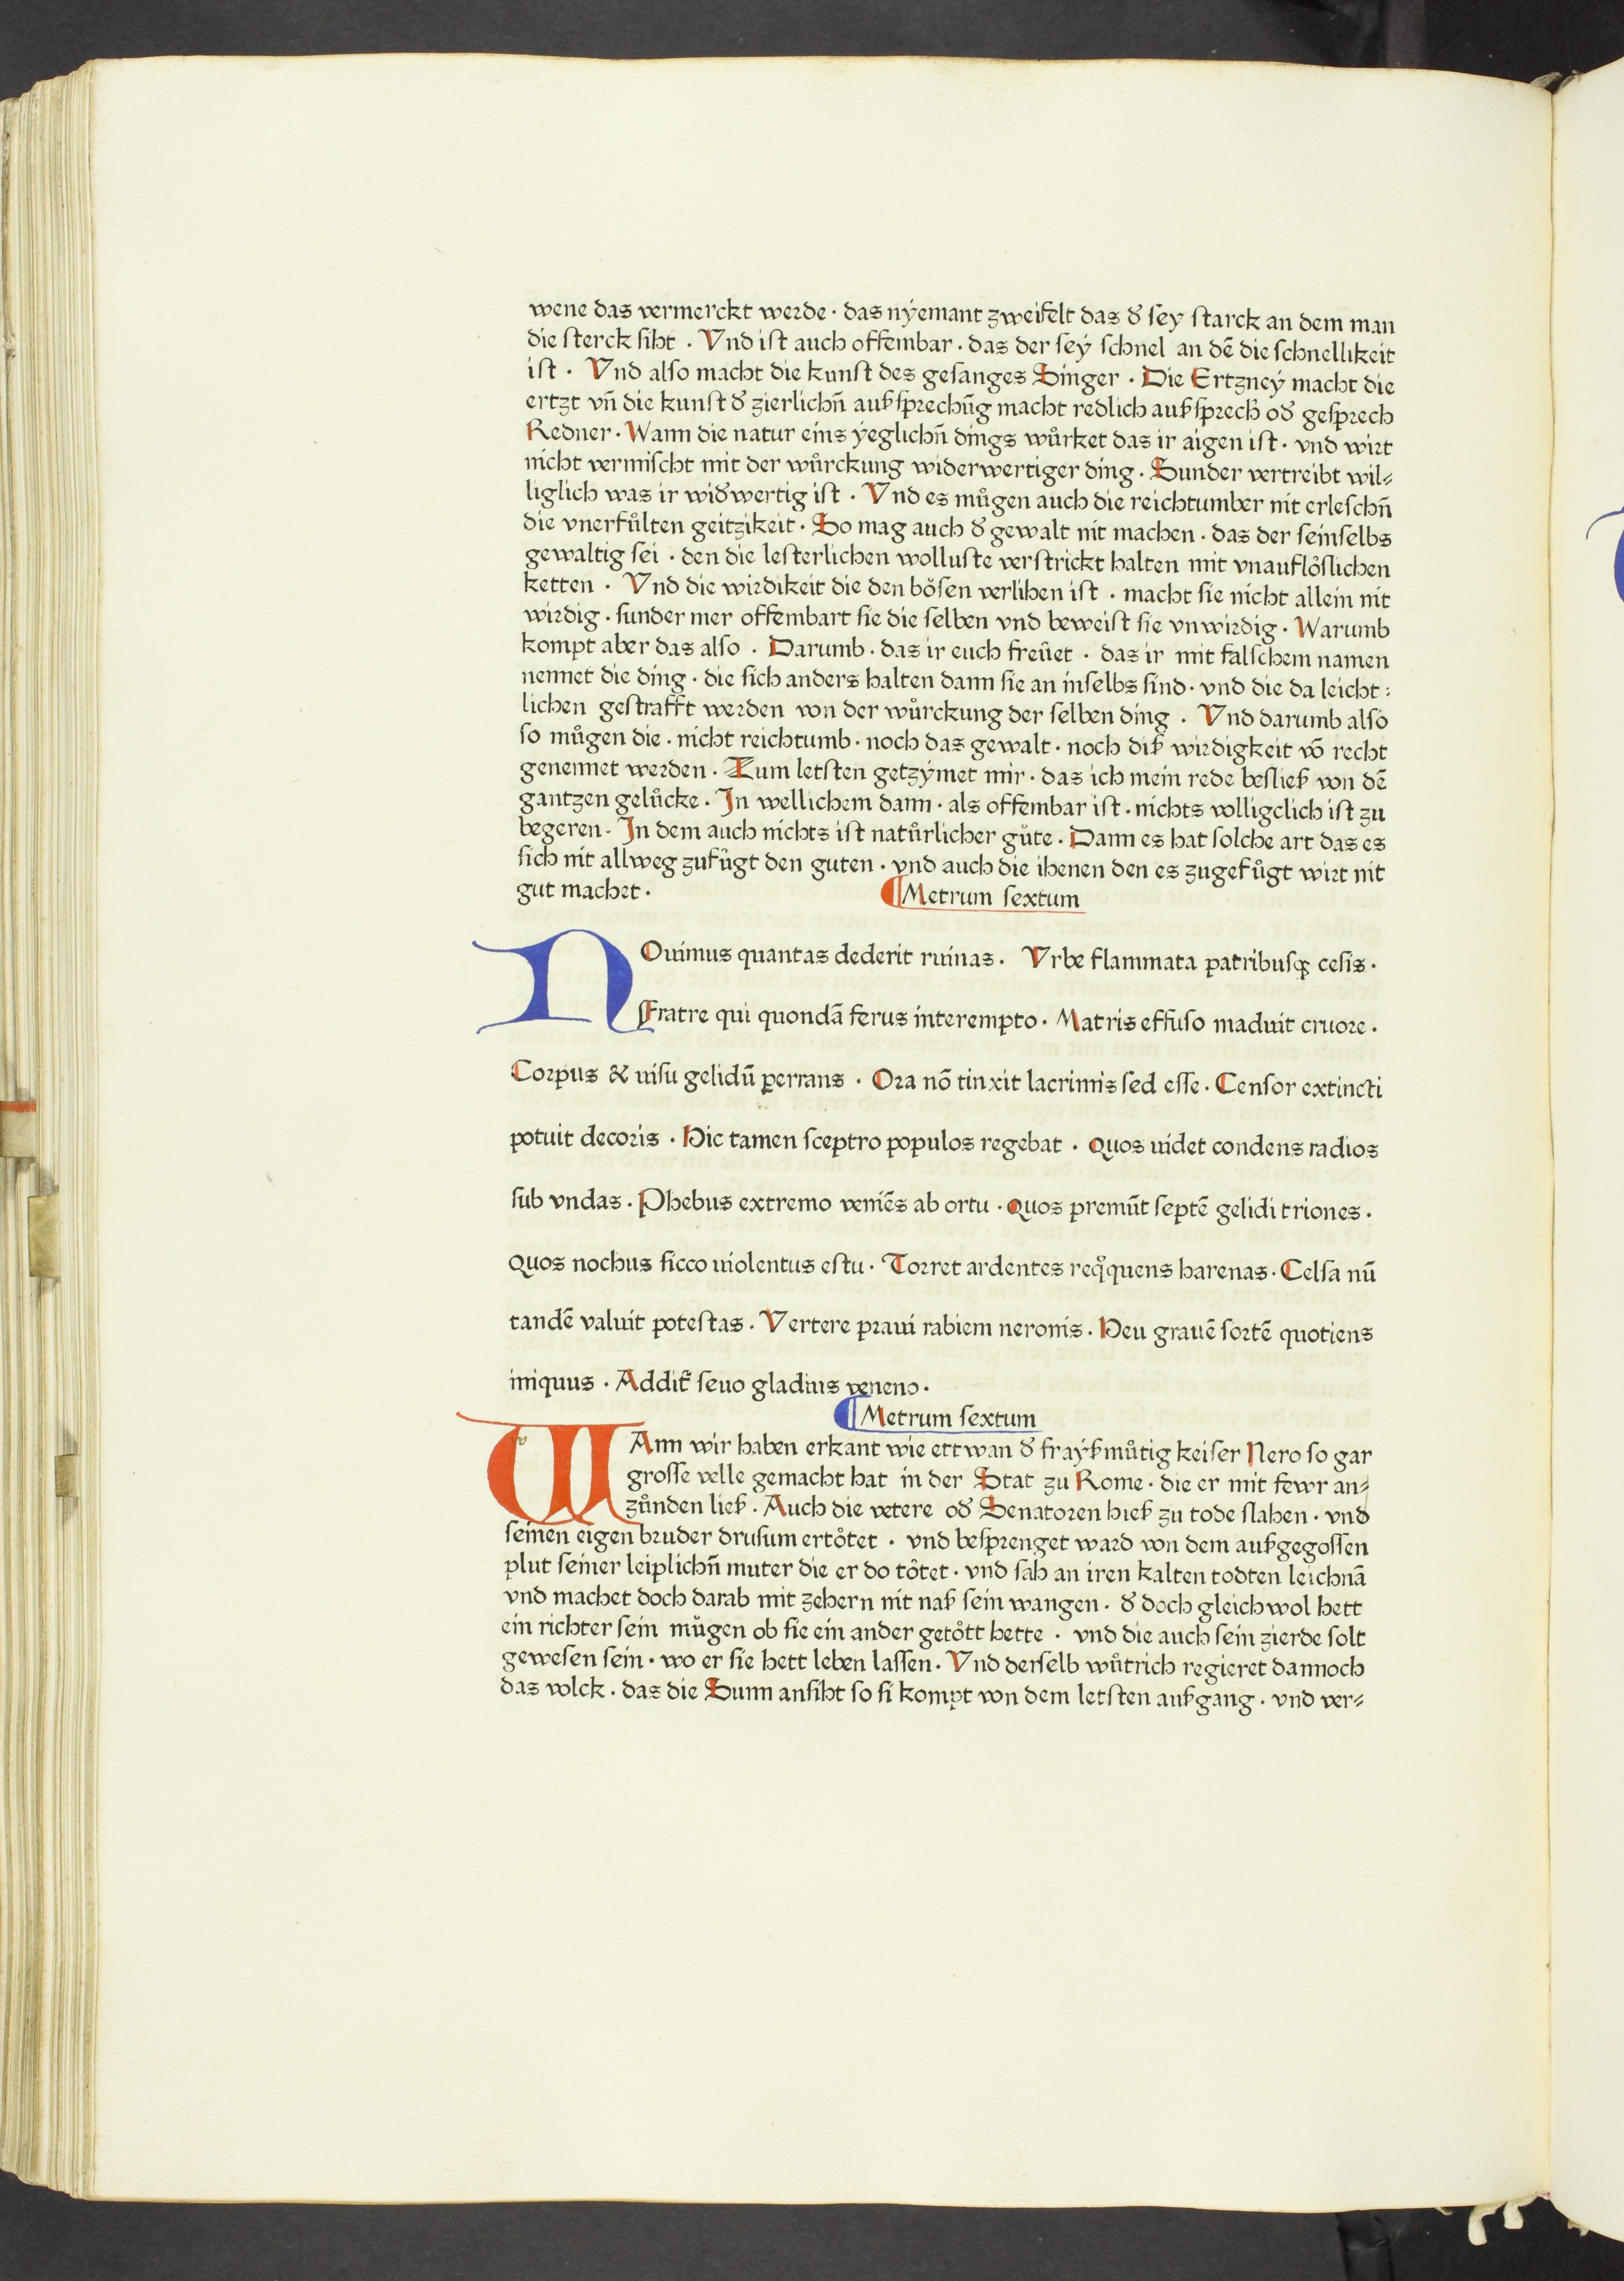 wene das vermerckt werde · das nÿemant zweifelt das d̕ ſey ſtarck an dem man
die ſterck ſiht . Vnd iſt auch offembar · das der ſeÿ ſchnel an dē die ſchnellikeit
iſt . Vnd alſo macht die kunſt des geſanges Singer . Die Ertzneÿ macht die
ertzt vn̄ die kunſt d̕ zierlichn̄ außſprechūg macht redlich außſprech̕ od̕ geſprech
Redner . Wann die natur eins ÿeglichn̄ dings wůrket das ir aigen iſt · vnd wirt
nicht vermiſcht mit der wůrckung widerwertiger ding . Sunder vertreibt wil⸗
liglich was ir wid̕wertig iſt . Vnd es můgen auch die reichtumber nit erleſchn̄
die vnerfůlten geitzikeit . So mag auch d̕ gewalt nit machen · das der ſeinſelbs
gewaltig ſei · den die leſterlichen wolluſte verſtrickt halten mit vnauflo̊ſlichen
ketten . Vnd die wirdikeit die den bo̊ſen verlihen iſt · macht ſie nicht allein nit
wirdig · ſunder mer offembart ſie die ſelben vnd beweiſt ſie vnwirdig . Warumb
kompt aber das alſo . Darumb · das ir euch freůet · das ir mit falſchem namen
nennet die ding · die ſich anders halten dann ſie an inſelbs ſind · vnd die da leicht :
lichen geſtrafft werden von der wůrckung der ſelben ding . Vnd darumb alſo
ſo můgen die · nicht reichtumb · noch das gewalt · noch diß wirdigkeit vō recht
genennet werden . Zum letſten getzÿmet mir · das ich mein rede beſließ von dē
gantzen gelůcke . In wellichem dann · als offembar iſt · nichts volligclich iſt zu
begeren . In dem auch nichts iſt natůrlicher gůte . Dann es hat ſolche art das es
ſich nit allweg zufůgt den guten · vnd auch die ihenen den es zugefůgt wirt nit
gut machet .
¶Metrum ſextum
NOuimus quantas dederit ruinas . Vrbe flammata patribuſqꝫ ceſis .
Fratre qui quondā ferus interempto . Matris effuſo maduit cruore .
Corpus & uiſu gelidū ꝑerrans . Ora nō tinxit lacrimis ſed eſſe . Cenſor extincti
potuit decoris . Hic tamen ſceptro populos regebat . Quos uidet condens radios
ſub vndas . Phebus extremo veniēs ab ortu . Quos premūt ſeptē gelidi triones .
Quos nochus ſicco uiolentus eſtu . Torret ardentes reqͦquens harenas . Celſa nū
tandē valuit poteſtas . Vertere praui rabiem neronis . Heu grauē ſortē quotiens
iniquus . Addit̕ ſeuo gladius veneno .
¶Metrum ſextum
WAnn wir haben erkant wie ettwan d̕ fraÿßmůtig keiſer Nero ſo gar
groſſe velle gemacht hat in der Stat zu Rome · die er mit fewr an⸗
zůnden ließ . Auch die vetere od̕ Senatoren hieß zu tode ſlahen · vnd
ſeinen eigen bruder druſum erto̊tet · vnd beſprenget ward von dem außgegoſſen
plut ſeiner leiplichn̄ muter die er do to̊tet · vnd ſah an iren kalten todten leichnā
vnd machet doch darab mit zehern nit naß ſein wangen . d̕ doch gleichwol hett
ein richter ſein můgen ob ſie ein ander geto̊tt hette . vnd die auch ſein zierde ſolt
geweſen ſein · wo er ſie hett leben laſſen . Vnd derſelb wůtrich regieret dannoch
das volck . das die Sunn anſiht ſo ſi kompt von dem letſten außgang . vnd ver⸗